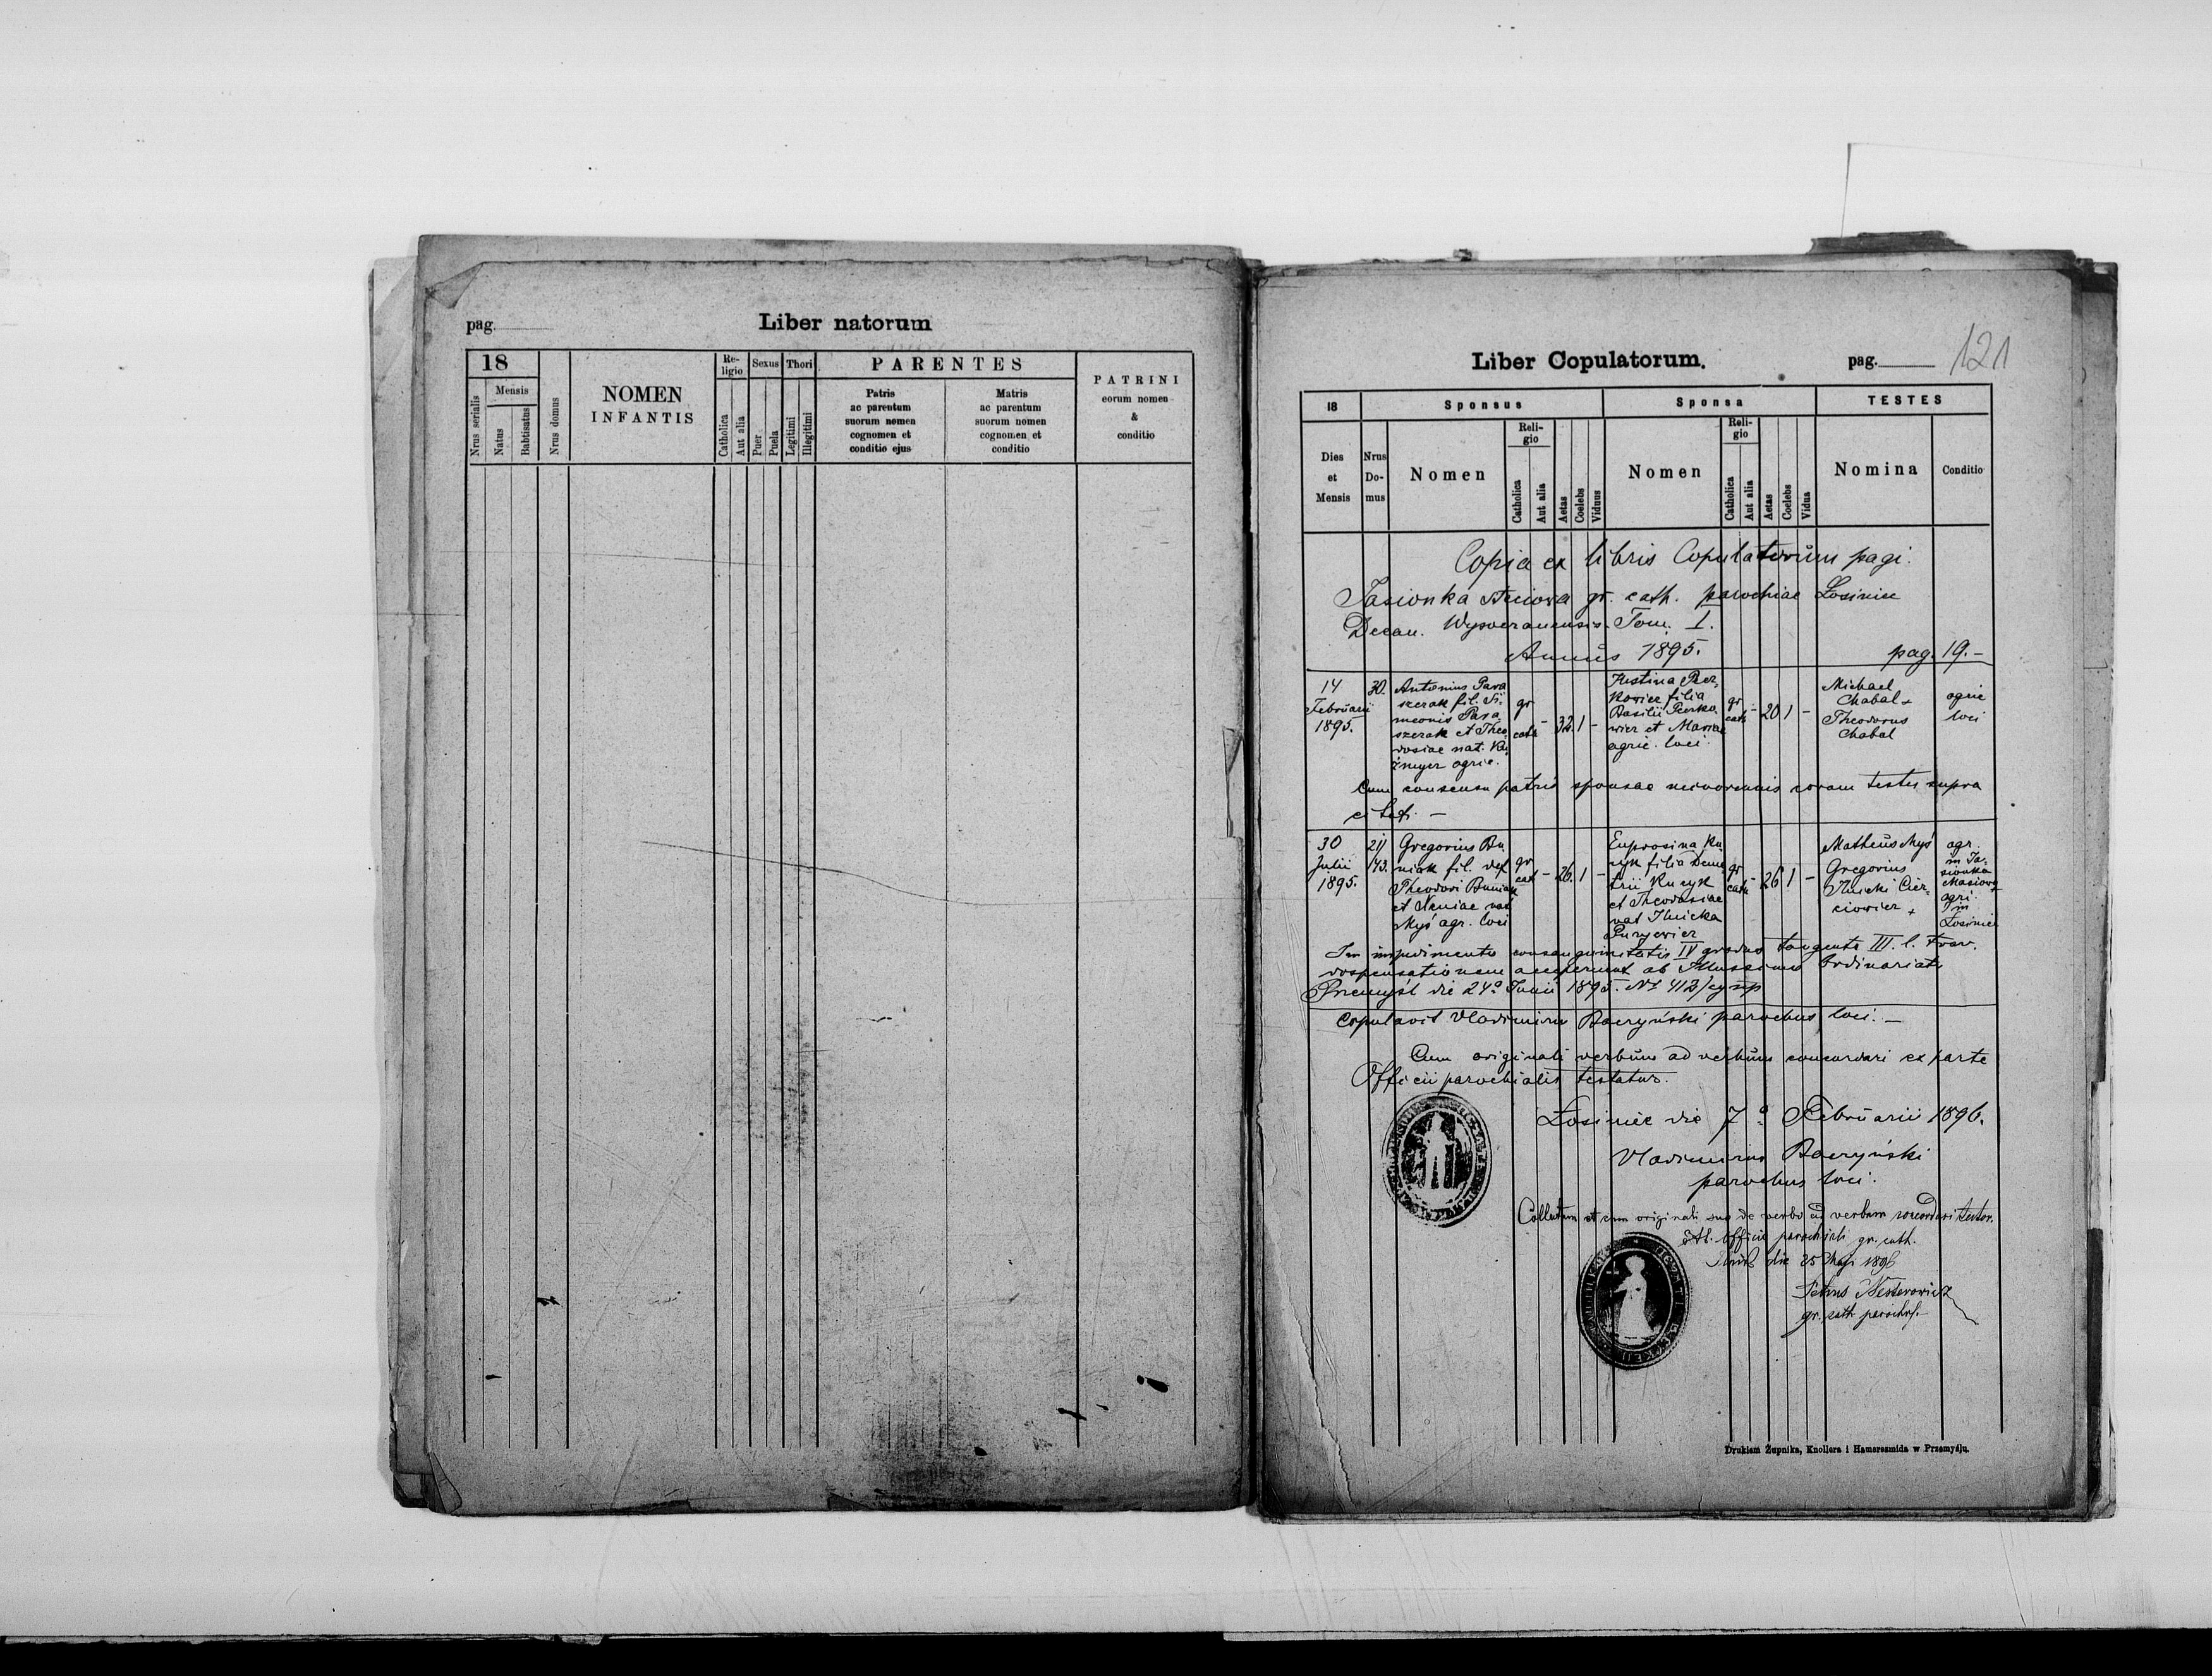 pag.
Liber natorum
18
Mensis
Nrus serialis
Natus
Babtisatus
Nrus domus
NOMEN
INFANTIS
Re-
ligio
Catholica
Aut alia
Sexus
Puer
Puela
Thori
Legitimi
Illegitimi
PARENTES
Patris
ac parentum
suorum nomen
cognomen et
conditio ejus
Matris
ac parentum
suorum nomen
cognomen et
conditio
PATRINI
eorum nomen
&
conditio
Liber Copulatorum.
pag.
121
18
Sponsus
Sponsa
TESTES
Dies
et
Mensis
Nrus
Do-
mus
Nomen
Reli-
gio
Catholica
Aut alia
Aetas
Coelebs
Viduus
Nomen
Reli-
gio
Catholica
Aut alia
Aetas
Coelebs
Vidua
Nomina
Conditio
Copia ex libris Copulatorum pagi
Jasionka gr. cath. parochiae Łosiniec
Decan. Tom. I.
Annus 1895.
pag. 19.-
14
Februarii
1895.
30.
Antonius Para
szczak fil. Si
meonis Para
szczak et Theo
dosiae nat. Ku
agric.
gr
cath
-
32.
1
-
Justina
filia
Basilii
et Mariae
agric. loci.
gr
cath
-
20
1
-
Michael
Chabal
Theodorus
Chabal
agric
loci
Cum consensu patris sponsae coram testes supra
citat. —
30
Julii
1895.
21/
143.
Gregorius Bu
niak fil. def
Theodori Buniak
et nat
Myś agr. loci
gr
cat
-
26.
1
-
Euprosina Ku
filia Deme
trii
et Theodosiae
nat Ilnicka
gr
cath
-
26
1
-
Matheus Myś
Gregorius
Ilnicki
agr.
in Ja-
sionka
agri.
in
Łosiniec
In impedimento consanguinitatis IV gradus tangente III. l.
dispensationem acceperunt ab Ordinariatu
Przemyśl die 24º Junii 1895. Nº
Copulavit Vladimirus Baczyński parochus loci. —
Cum originali verbum ad verbum concordari ex parte
Officii parochialis testatur.
Łosiniec die 7º Februarii 1896.
Vladimirus Baczyński
parochus loci.
Collatum et cum originali suo de verbo ad verbum concordari testor.
Ab officio parochiali gr. cath.
die 25 Maji 1896
Petrus Nesterowicz
gr. cath parochus
Drukiem Żupnika, Knollera i Hamerszmida w Przemyślu.